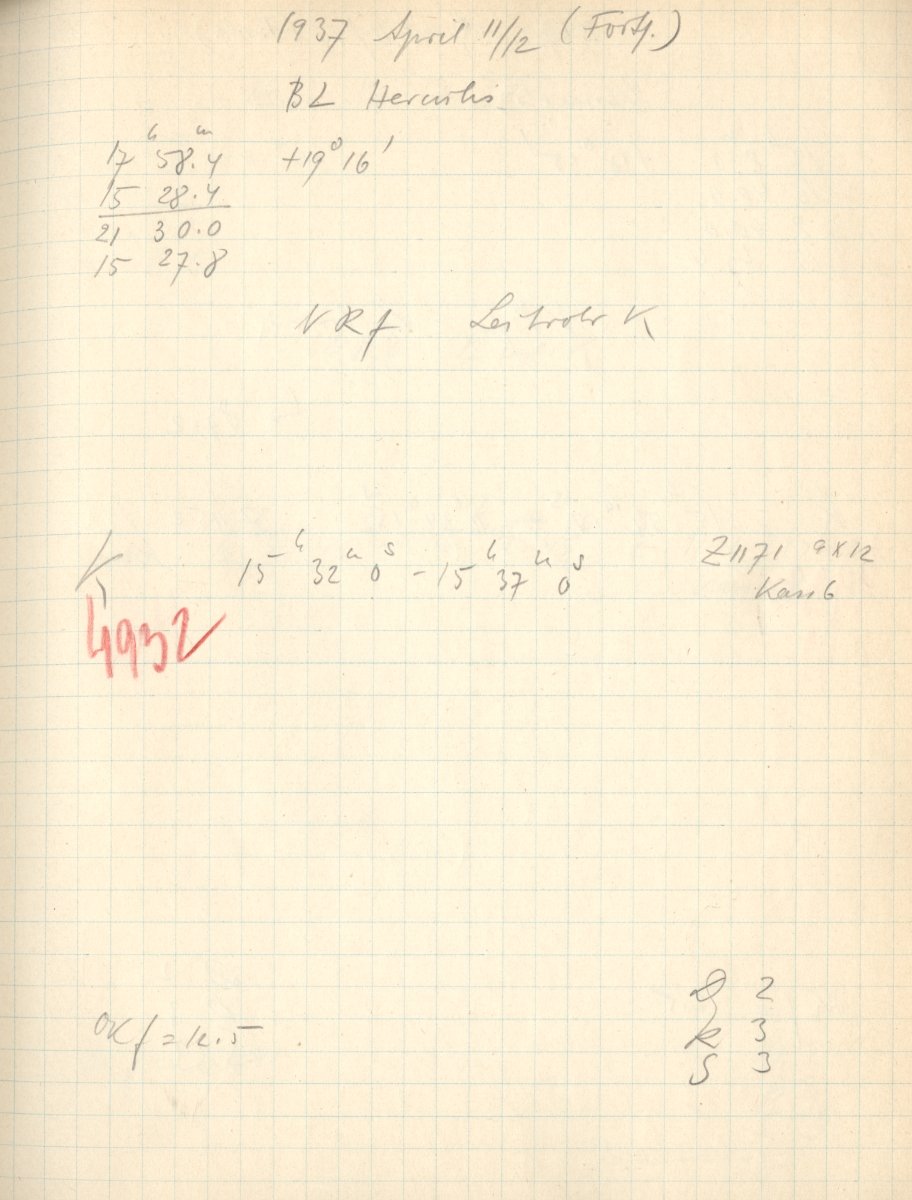 1937 April 11/12 (Forts.)
BL Herculis
17ʰ 58.4ᵐ +19° 16'
15 28.4
21 30.0
15 27.8
VRf Leitrohr K
15ʰ 32ᵐ 0ˢ - 15ʰ 37ᵐ 0ˢ Z1171 9x12
Kass 6
4932
D 2
OKf = 12.5 R 3
S 3